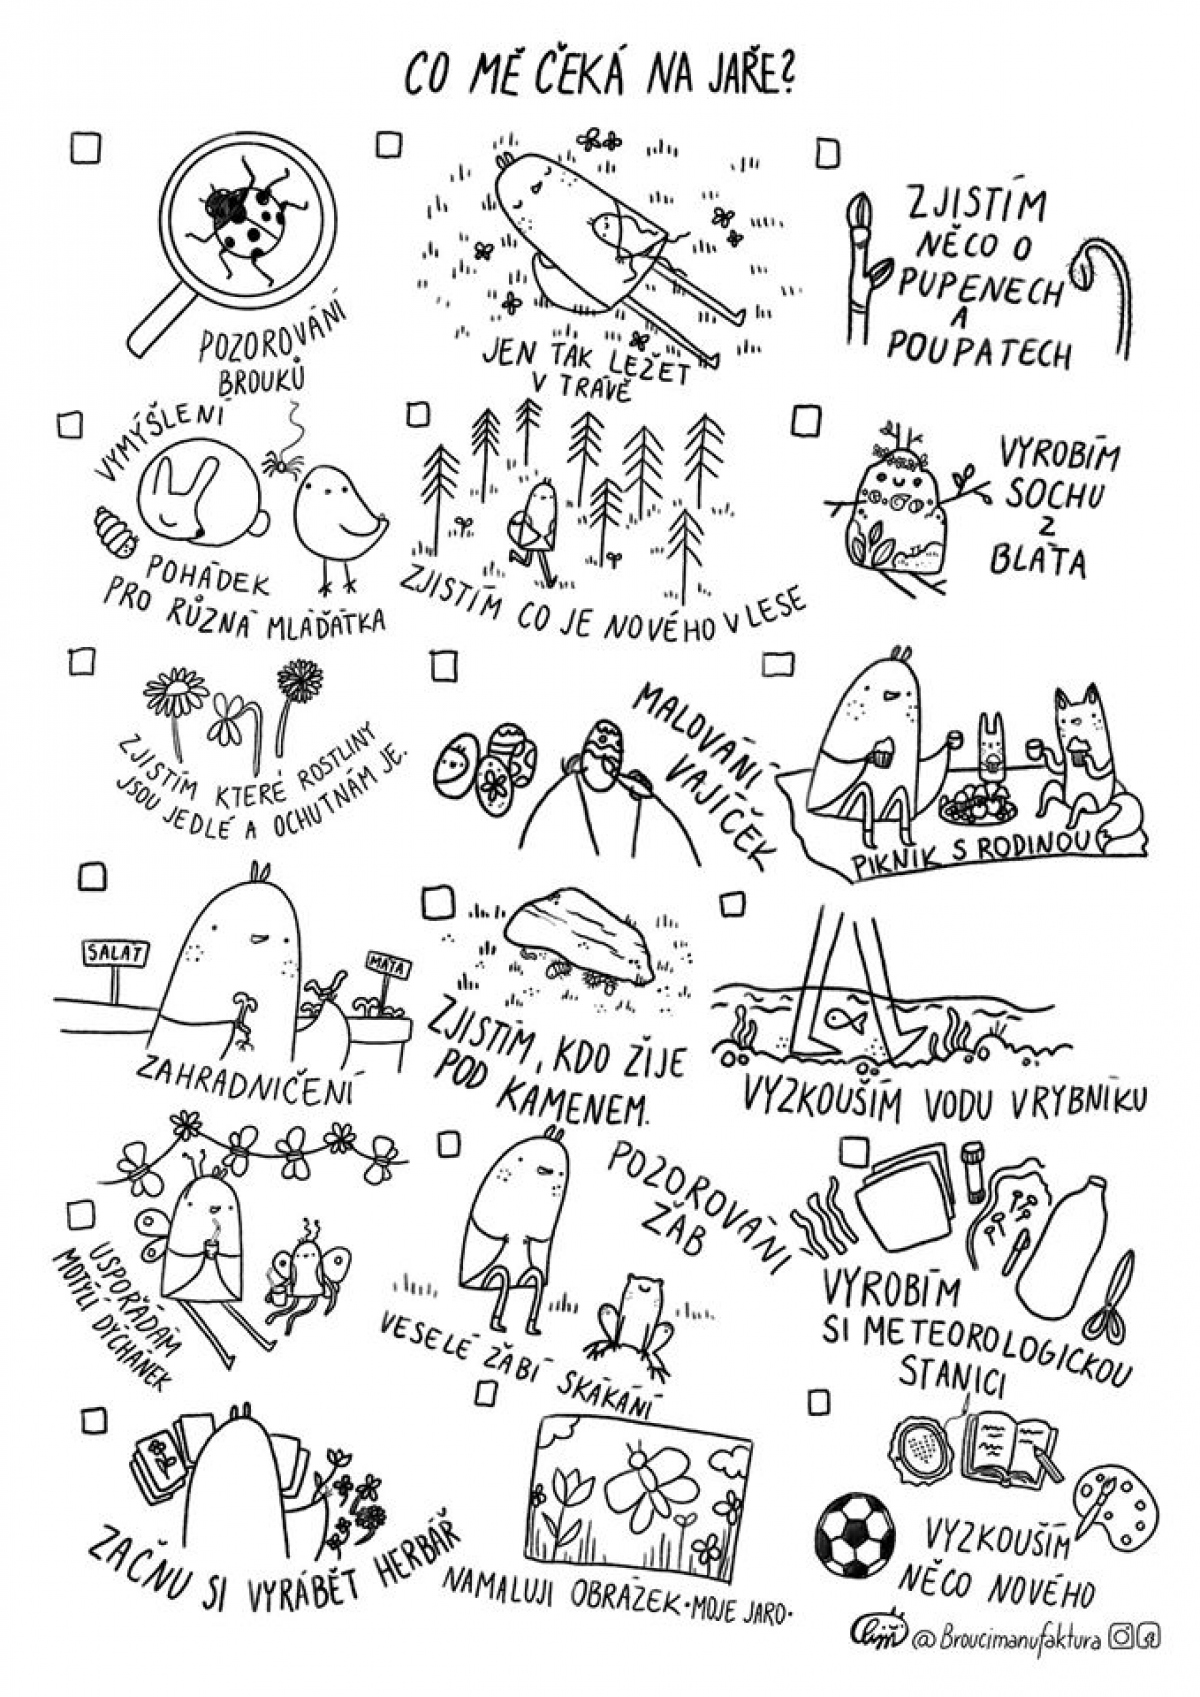 CO MĚ ČEKÁ NA JAŘE?
POZOROVÁNÍ
BROUKŮ
JEN TAK LEŽET
V TRÁVĚ
ZJISTÍM
NĚCO O
PUPENECH
A
POUPATECH
VYMÝŠLENÍ
POHÁDEK
PRO RŮZNÁ MLÁĎÁTKA
ZJISTÍM CO JE NOVÉHO V LESE
VYROBÍM
SOCHU
Z
BLÁTA
ZJISTÍM KTERÉ ROSTLINY
JSOU JEDLÉ A OCHUTNÁM JE.
MALOVÁNÍ
VAJÍČEK
PIKNIK S RODINOU
SALÁT
MÁTA
ZAHRADNIČENÍ
ZJISTÍM, KDO ŽIJE
POD KAMENEM.
VYZKOUŠÍM VODU V RYBNÍKU
USPOŘÁDÁM
MOTÝLÍ DÝCHÁNEK
POZOROVÁNÍ
ŽAB
VESELÉ ŽABÍ SKÁKÁNÍ
VYROBÍM
SI METEOROLOGICKOU
STANICI
ZAČNU SI VYRÁBĚT HERBÁŘ
NAMALUJI OBRÁZEK •MOJE JARO•
VYZKOUŠÍM
NĚCO NOVÉHO
@Broucimanufaktura